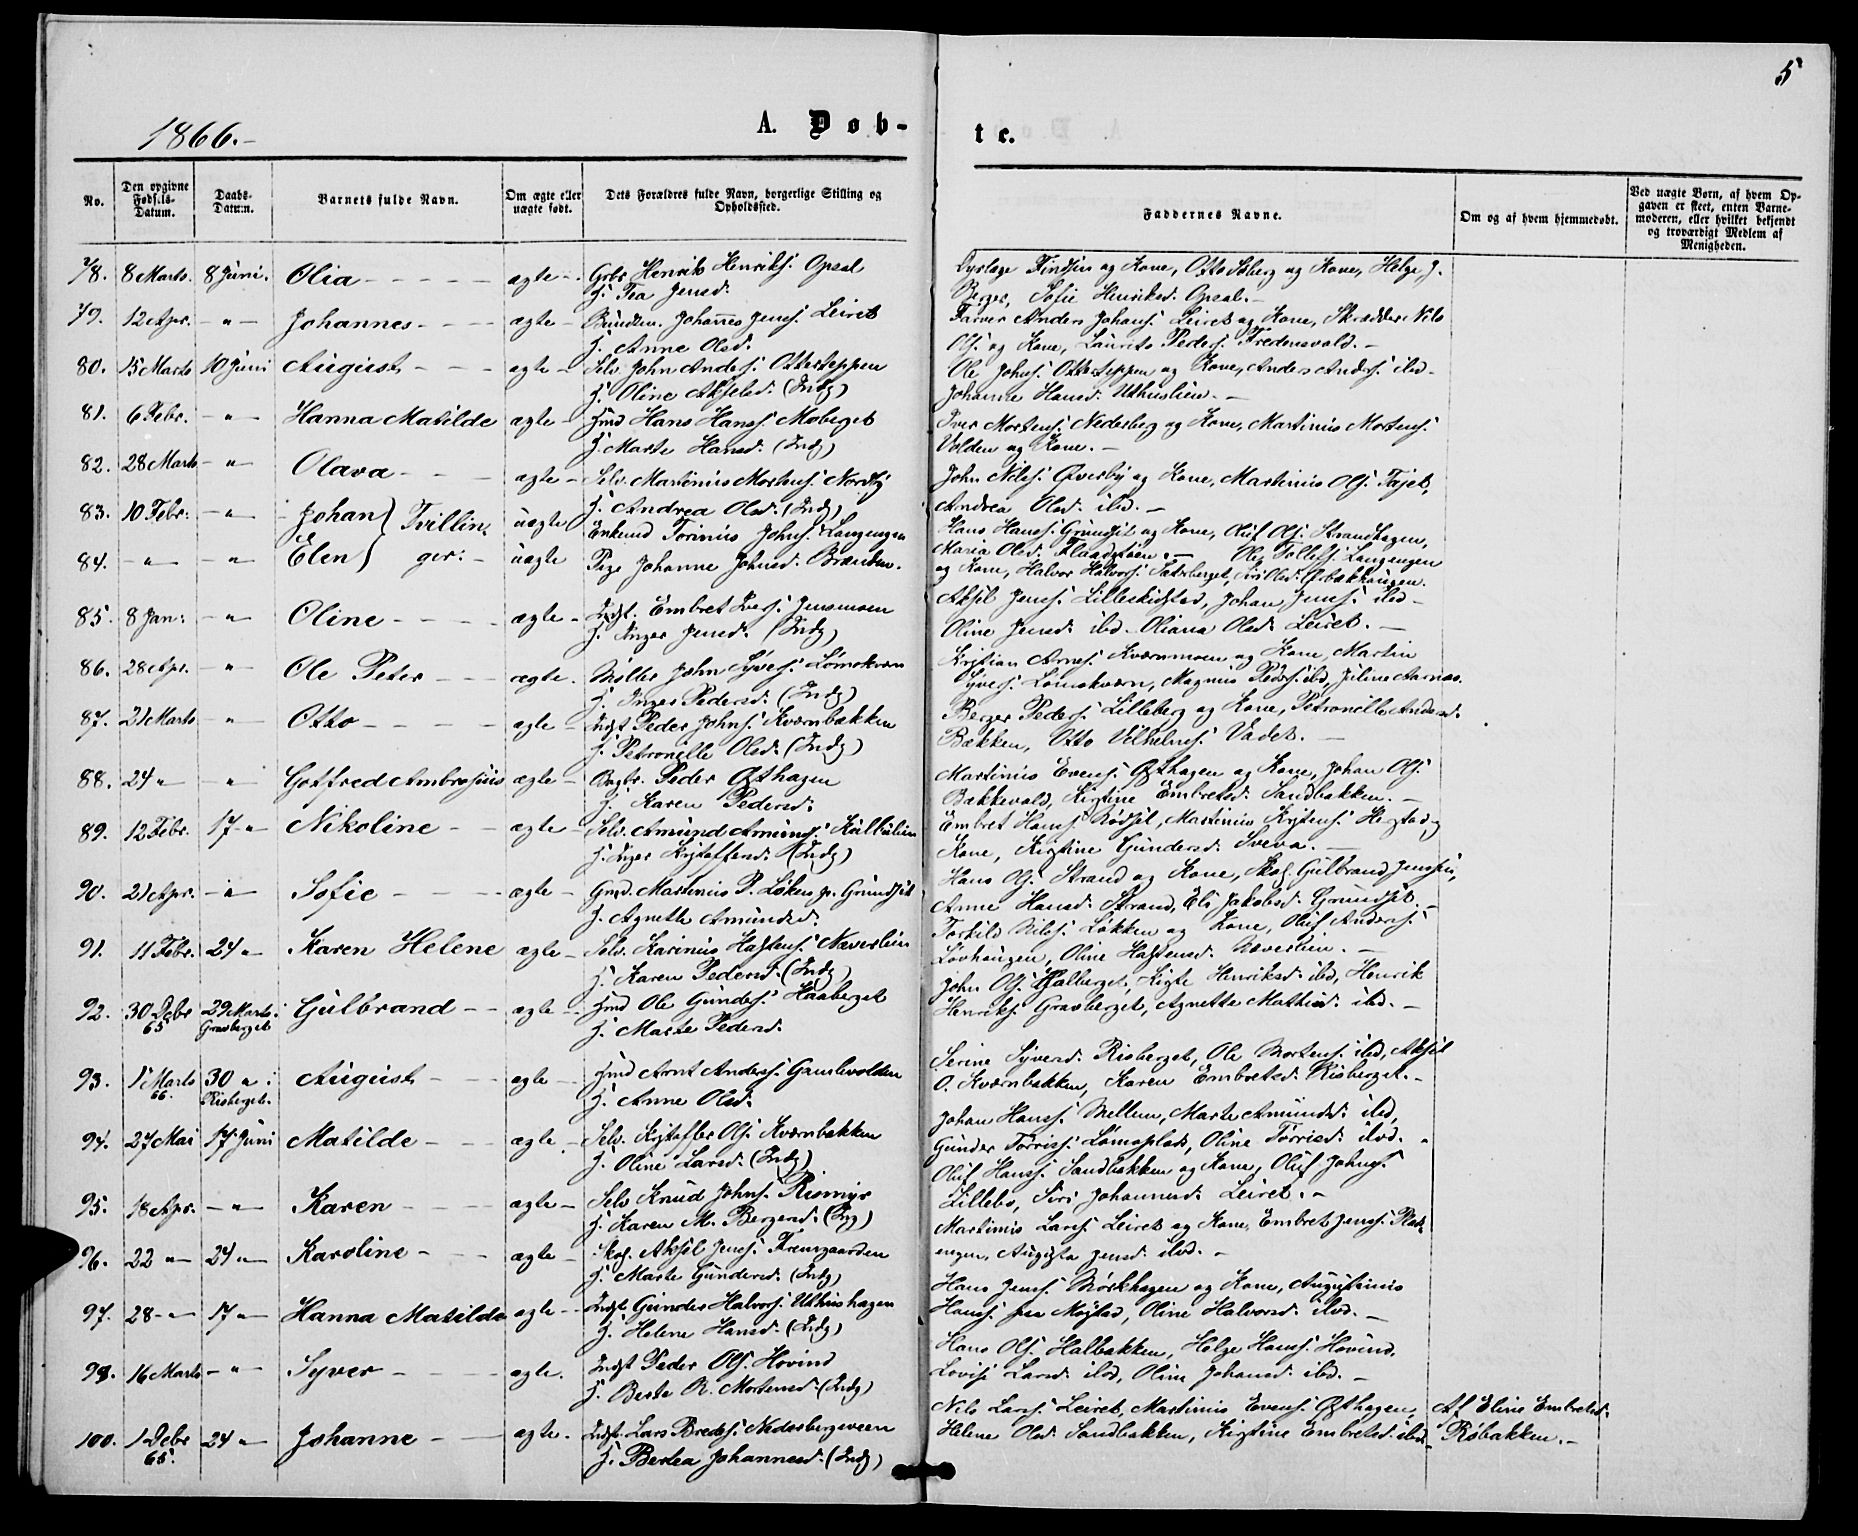 5
1866.-
A. Døb-
te.
No.
Den opgivne Føds.ls-Datum.
Daabs-Datum.
Barnets fulde Navn.
Om ægte eller uægte født.
Dets Forældres fulde Navn, borgerlige Stilling og Opholdssted.
Faddernes Navne.
Om og af hvem hjemmedøbt.
Ved uægte Børn, af hvem Opgaven er skeet, enten Barnemoderen, eller hvilket bekjendt og troværdigt Medlem af Menigheden.
78. 8 Marts. 8 Juni. Olia - ægte - Henrik Henriks. Opsal
H. Tea Jensd.
og Kone, Otto Søberg og Kone, Helge J.
Berger, Sofie Henriksd. Opsal. -
79. 12 Apr. - " - Johannes - ægte - Johannes Jens. Leiret
H. Anne Olsd.
Farver Anders Johans. Leiret og Kone, Skrædder Nils
Ols. og Kone, Laurits Peders. Fredensvold. -
80. 15 Marts 10 Juni August - ægte - Selv. John Anders. Otterteppen
H. Oline Akselsd. (Indg)
Ole Johns. Otterteppen og Kone, Anders Anders. ibd -
Johanne Hansd. Uthuslien. -
81. 6 Febr. - " - Hanna Matilde ægte - Hmd Hans Hans. Moberget
H. Marte Hansd. (Indg)
Iver Mortens. Nederberg og Kone, Martinius Mortens.
Volden og Kone. -
82. 28 Marts - " - Olava - ægte - Selv. Martinius Mortens. Nordby
H. Andrea Olsd. (Indg)
John Nils. Øverby og Kone, Martinius Ols.
Andrea Olsd. ibd. -
83. 10 Febr. - " - Johan } Tvillin- uægte Enkemd Johs. Langengen
Hans Hans. Grundset og Kone, Oluf Ols. Strandhagen,
Maria Olsd. - Ole Langengen
84. - " - - " - Elen } ger. - uægte Pige Johanne Johnsd. Brænden.
og Kone, Halvor Halvors.
85. 8 Jan. - " - Oline - ægte - Indst. Embret Jensmoen
H. Inger Jensd. (Indg)
Aksil Jens. Johan Jens. ibd -
Oline Jensd. ibd - Oliana Olsd. Leiret. -
86. 28 Apr. - " - Ole Peter - ægte. Møller John Syvers. Lømokværn
H. Inger Pedersd. (Indg)
Kristian Arnes. Kværnmoen og Kone, Martin
Syvers. Lømokværn, Magnus Peders. ibd, Aarnæs.
87. 21 Marts - " - Otto - ægte - Indst Peder Johns. Kværnbækken
H. Petronille Olsd. (Indg)
Berger Peders. Lilleberg og Kone, Petronille Andersd.
Bækken, Otto Vilhelms. Vadet. -
88. 24 " - - " - Gotfred Ambrosius ægte - Peder Østhagen
H. Karen Pedersd.
Martinius Evens. Østhagen og Kone, Johan Ols.
Bækkevold, Kristine Embretsd. Sandbakken. -
89. 12 Febr. 17 " - Nikoline - ægte - Selv. Amund Amunds.
H. Inger Kristoffersd. (Indg)
Embret Hans. Rødsit, Martinius Kristens.
Kone, Kristine Gundersd. Sveva. -
90. 21 Apr. - " - Sofie - ægte - Martinius P. Løken Grundset
H. Agnethe Amundsd.
Hans Ols. Strand og Kone, Gulbrand Jensen,
Anne Hansd. Strand, Eli Jakobsd. Grundset. -
91. 11 Febr. 24 " - Karen Helene ægte - Selv. Karinius Næverlien
H. Karen Pedersd. (Indg)
Torkild Nils. Løkken og Kone, Oluf Anders.
Lovhaugen, Oline Næverlien. -
92. 30 Debr 65 29 Marts Grasberget Gulbrand - ægte - Hmd Ole Gunders. Haaberget
H. Marte Pedersd.
John Ols. Halberget, Kirste Henriksd. ibd, Henrik
Henriks. Grasberget, Agnette Mathisd. ibd. -
93. 1 Marts 66. 30 " : Risberget. August - ægte - Hmd Arnt Anders. Gamlevolden
H. Anne Olsd.
Serine Syversd. Risberget, Ole Mortens. ibd, Aksil
O. Kværnbækken, Karen Embretsd. Risberget. -
94. 27 Mai 17 Juni Matilde - ægte - Selv. Kristoffer Ols. Kværnbækken
H. Oline Larsd. (Indg)
Johan Hans. Mellem, Marte Amundsd. ibd,
Gunder Tørris. Oline Tørrisd. ibd. -
95. 18 Apr. - " - Karen - ægte - Selv Knud Johns. Rismyr
H. Karen M. Bergersd. (Ing)
Oluf Hans. Sandbakken og Kone, Oluf Johns.
Lillebo, Siri Johannesd. Leiret. -
96. 22 " - 24 " - Karoline - ægte - Skog. Aksil Jens. Fremgaarden
H. Marte Gundersd. (Indg)
Martinius Lars. Leiret og Kone, Embret Jens. Plad-
engen, Augusta Jensd. ibd. -
97. 28 " - 17 " - Hanna Matilde ægte - Indst. Gunder Halvors. Uthushagen
H. Helene Hansd. (Indg)
Hans Jens. Mørkhagen og Kone, Augustinus
Hans. fra Møystad, Oline Halvorsd. ibd. -
98. 16 Marts - " - Syver - ægte. Indst Peder Ols. Hovind
H. Berte R. Mortensd. (Indg)
Hans Ols. Halbakken, Helge Hans. Hovind,
Lovise Larsd. ibd, Oline Johansd. ibd. -
100. 1 Debr 65. 24 " - Johanne - ægte. Indst. Lars Bredes. Nederbergsveen
H. Bertea Johannesd. (Indg)
Nils Lars. Leiret, Martinius Evens. Østhagen,
Helene Olsd. Sandbakken, Kirstine Embretsd. ibd -
Af Eline Embretsd.
Røbakken. -